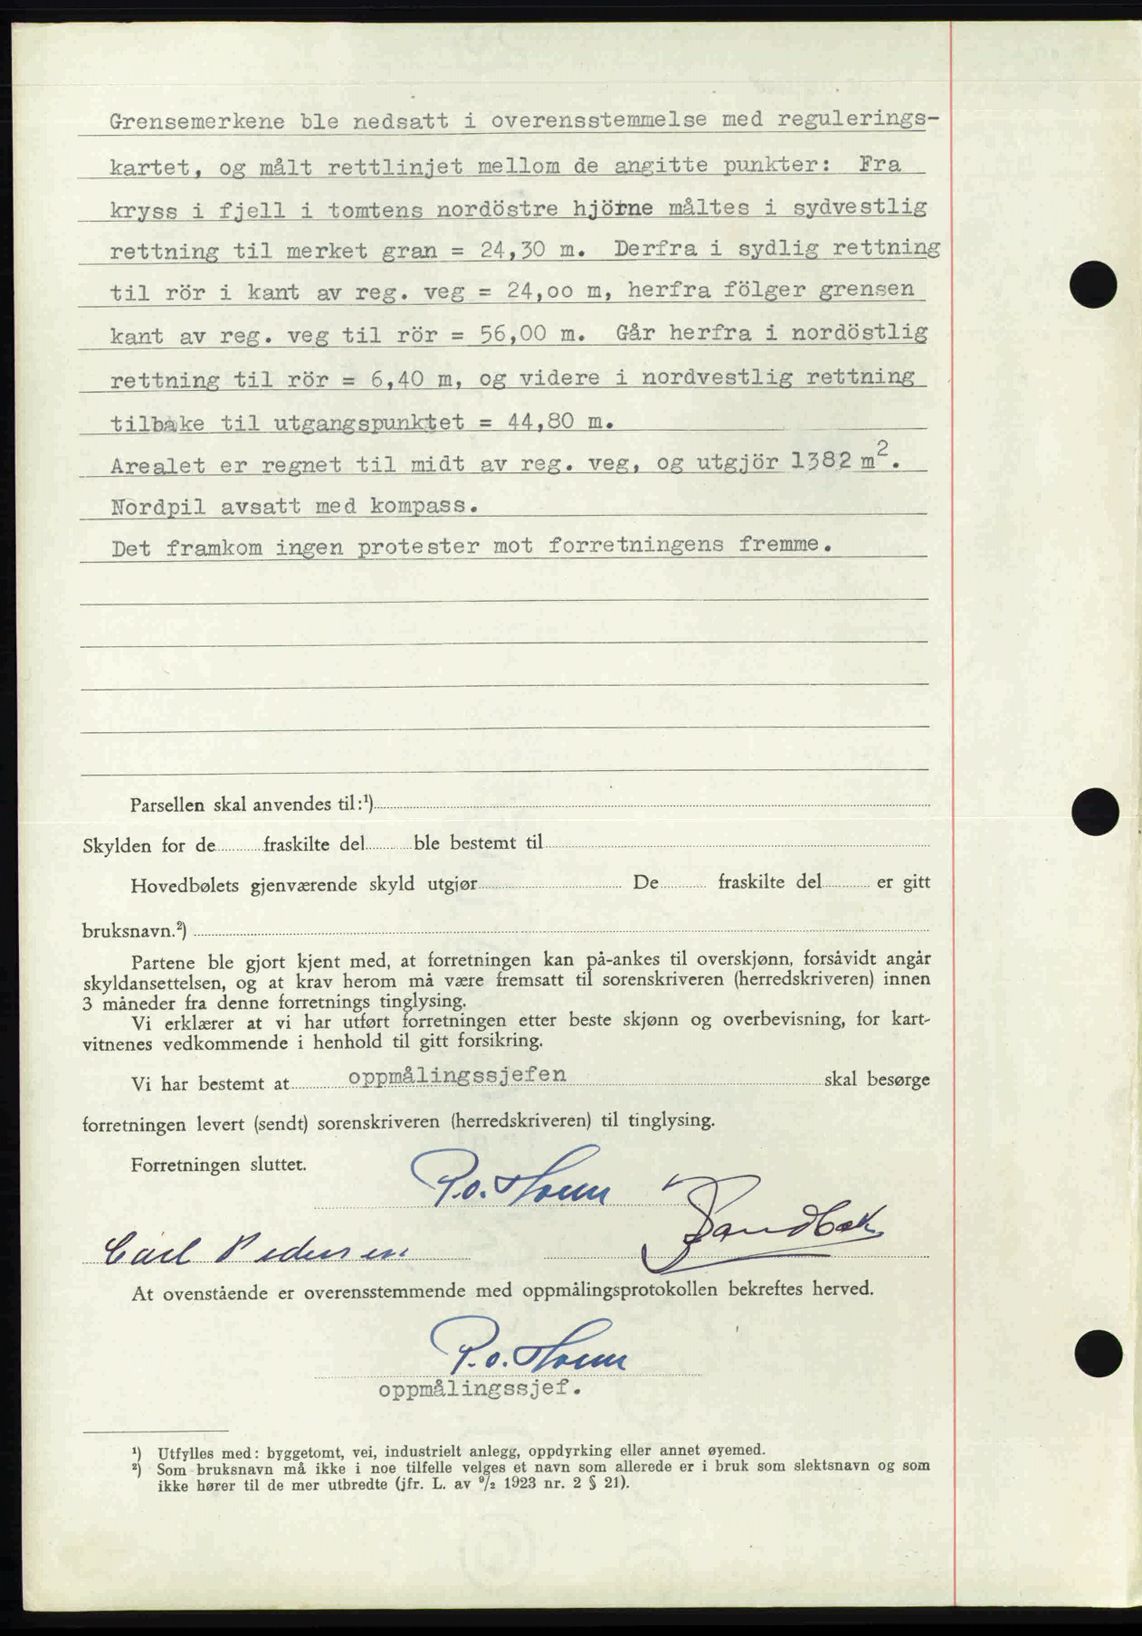 Grensemerkene ble nedsatt i overensstemmelse med regulerings-
kartet, og målt rettlinjet mellom de angitte punkter: Fra
kryss i fjell i tomtens nordöstre hjörne måltes i sydvestlig
rettning til merket gran = 24,30 m. Derfra i sydlig rettning
til rör i kant av reg. veg = 24,oo m, herfra fölger grensen
kant av reg. veg til rör = 56,00 m. Går herfra i nordöstlig
rettning til rör = 6,40 m, og videre i nordvestlig rettning
tilbake til utgangspunktet = 44,80 m.
Arealet er regnet til midt av reg. veg, og utgjör 1382 m².
Nordpil avsatt med kompass.
Det framkom ingen protester mot forretningens fremme.
Parsellen skal anvendes til:¹)
Skylden for de fraskilte del ble bestemt til
Hovedbølets gjenværende skyld utgjør De fraskilte del er gitt
bruksnavn.²)
Partene ble gjort kjent med, at forretningen kan på-ankes til overskjønn, forsåvidt angår
skyldansettelsen, og at krav herom må være fremsatt til sorenskriveren (herredskriveren) innen
3 måneder fra denne forretnings tinglysing.
Vi erklærer at vi har utført forretningen etter beste skjønn og overbevisning, for kart-
vitnenes vedkommende i henhold til gitt forsikring.
Vi har bestemt at oppmålingssjefen skal besørge
forretningen levert (sendt) sorenskriveren (herredskriveren) til tinglysing.
Forretningen sluttet.
P.o.
Carl Pedersen Sandbak
At ovenstående er overensstemmende med oppmålingsprotokollen bekreftes herved.
P.o.
oppmålingssjef.
¹) Utfylles med: byggetomt, vei, industrielt anlegg, oppdyrking eller annet øyemed.
²) Som bruksnavn må ikke i noe tilfelle velges et navn som allerede er i bruk som slektsnavn og som
ikke hører til de mer utbredte (jfr. L. av ⁹/₂ 1923 nr. 2 § 21).